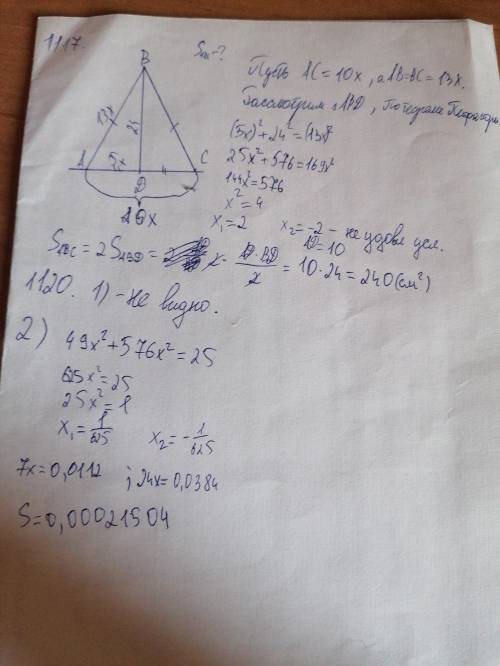 1117.
S - ?
B
Пусть AC = 10x, а AB=BC = 13x.
Рассмотрим △ABD, По теореме Пифагора
13x
24
(5x)²+24²=(13x)²
25x²+576=169x²
144x²=576
x²=4
x₁=2 x₂=-2 - не удовл усл.
A 5x D C
10x
AD=10
S_ABC = 2S_ABD = 2 · AD·BD / 2 = 10·24 = 240 (см²)
1120. 1) - не видно.
2) 49x²+576x²=25
625x²=25
25x²=1
x₁=1/625 x₂=-1/625
7x=0,0112 ; 24x=0,0384
S=0,00021504